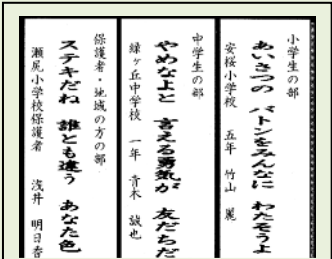 小学生の部
あいさつの バトンをみんなに わたそうよ
安桜小学校 五年 竹山 麗
中学生の部
やめなよと 言える勇気が 友だちだ
緑ヶ丘中学校 一年 青木 誠也
保護者・地域の方の部
ステキだね 誰とも違う あなた色
瀬尻小学校保護者 浅井 明日香